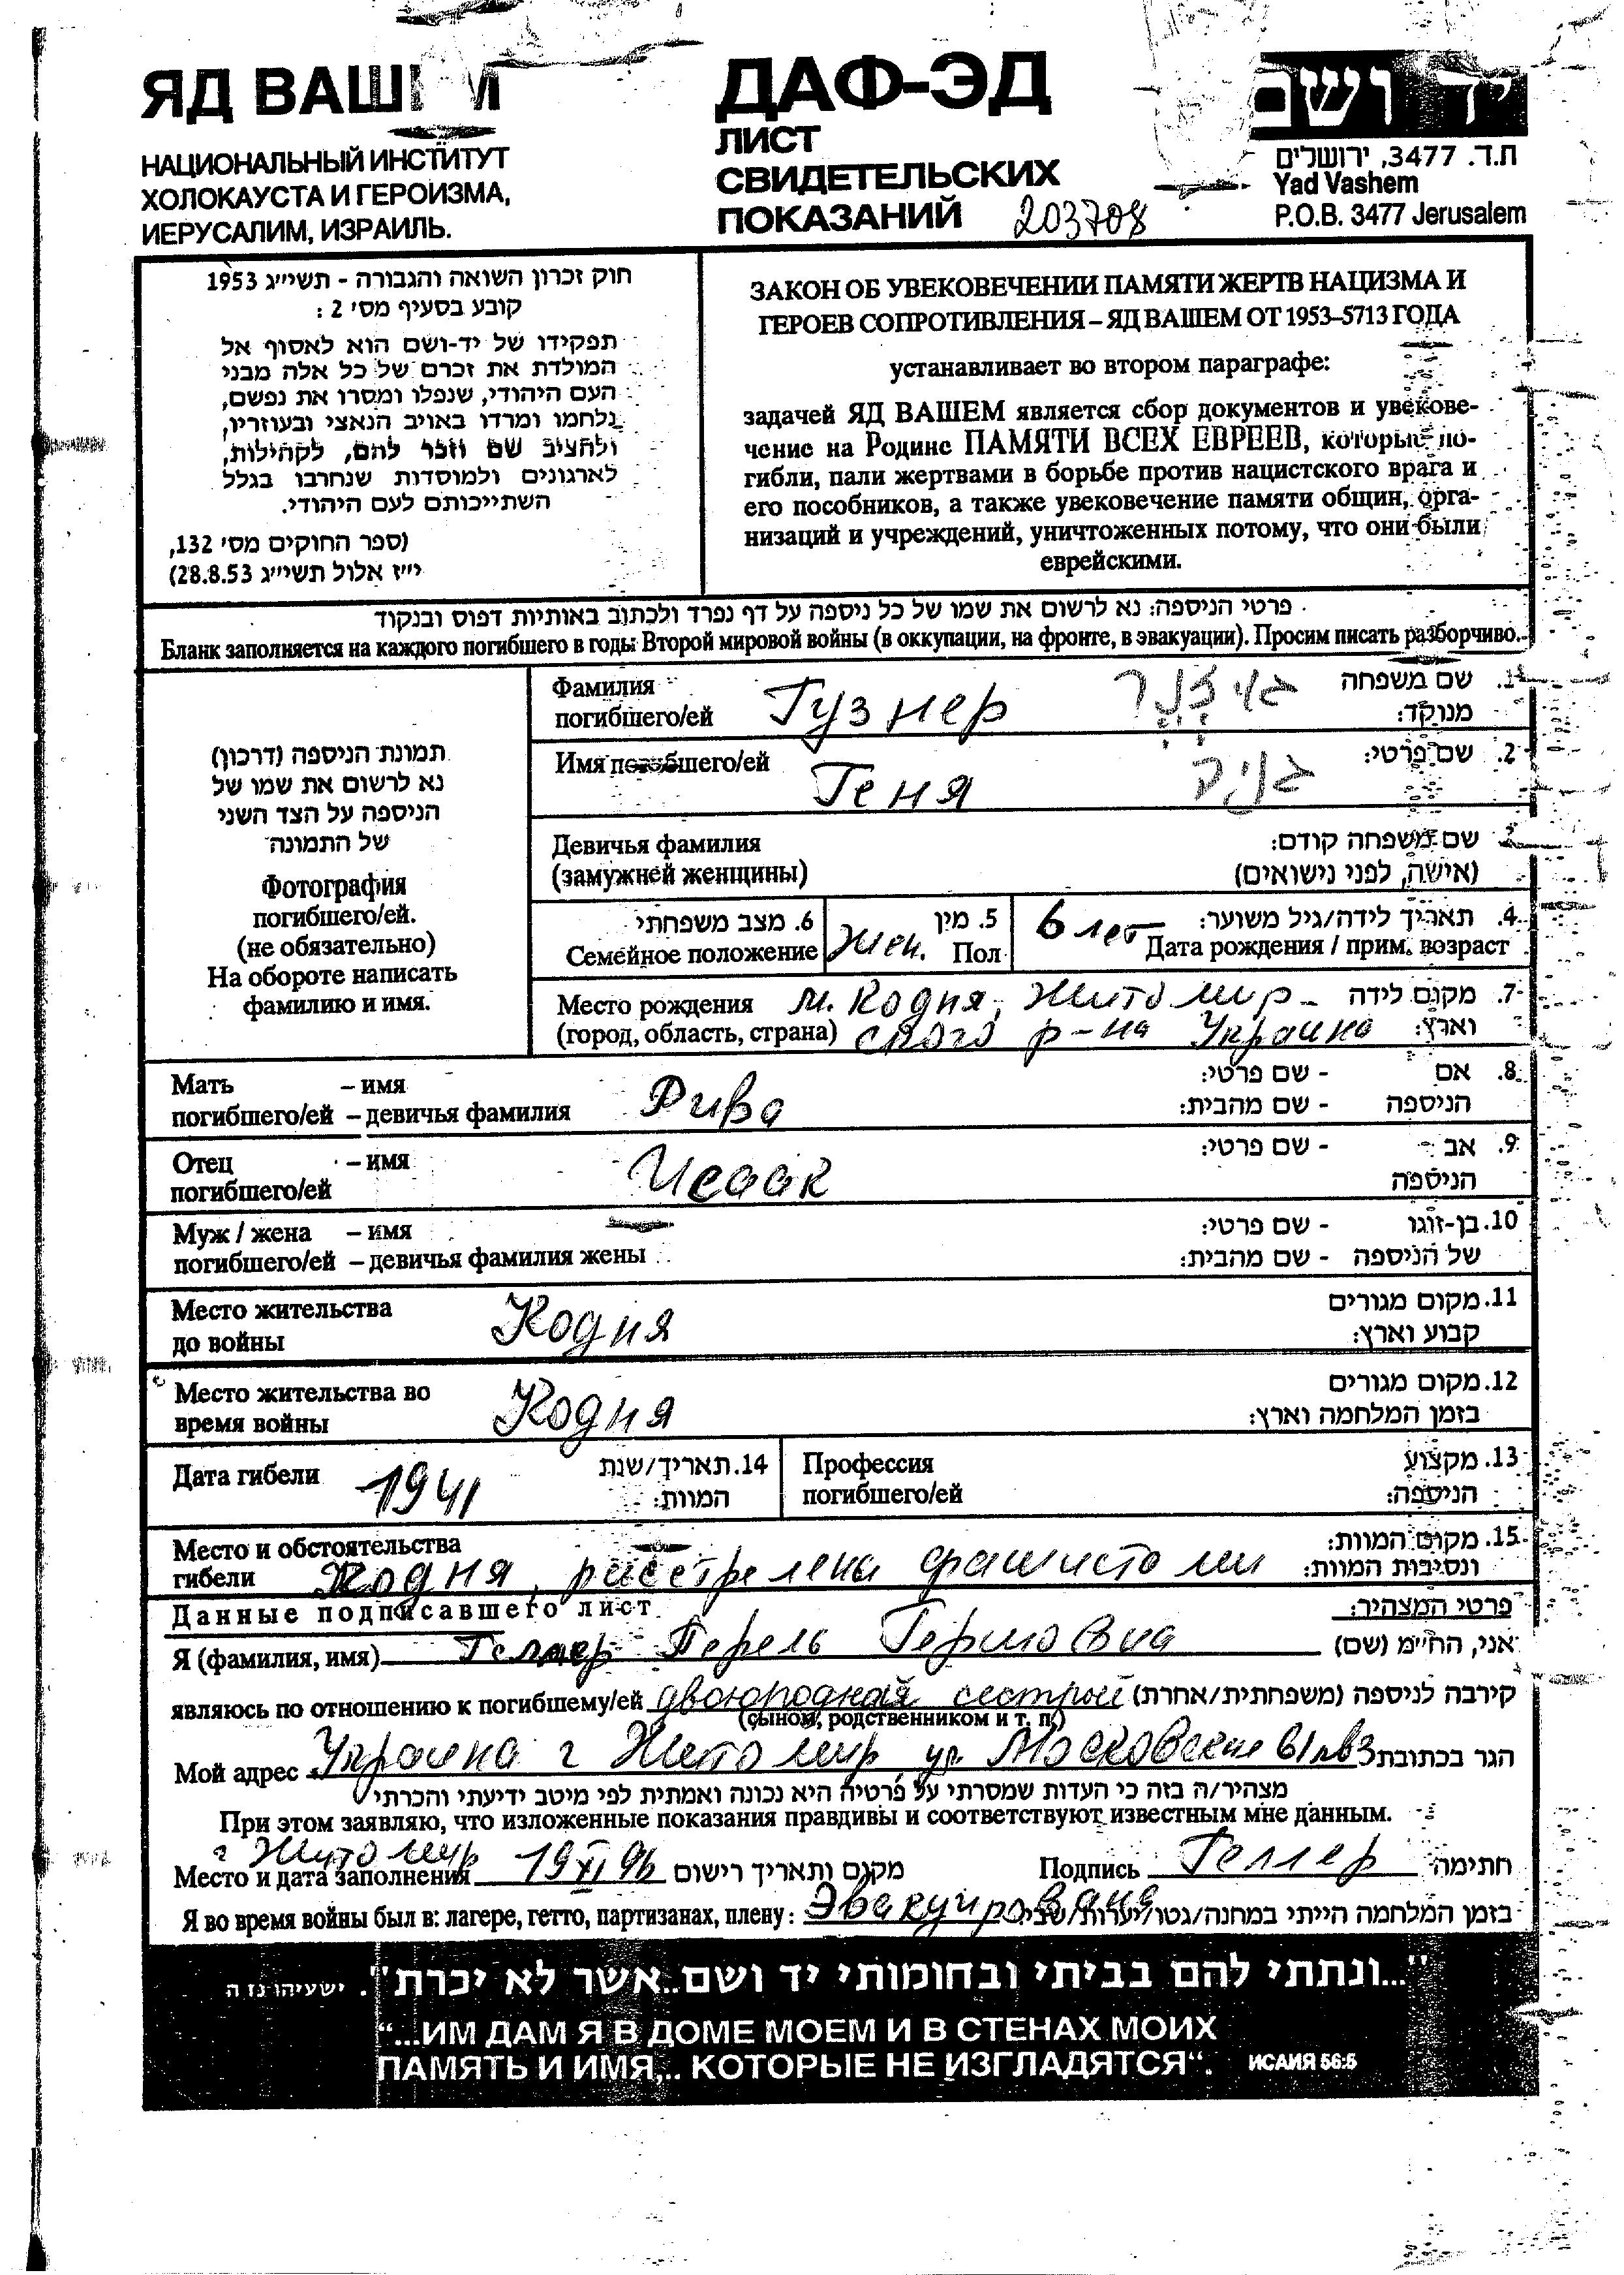 ЯД ВАШЕМ
НАЦИОНАЛЬНЫЙ ИНСТИТУТ
ХОЛОКАУСТА И ГЕРОИЗМА,
ИЕРУСАЛИМ, ИЗРАИЛЬ.
ДАФ-ЭД
ЛИСТ
СВИДЕТЕЛЬСКИХ
ПОКАЗАНИЙ 203708
יד ושם
ת.ד. 3477, ירושלים
Yad Vashem
P.O.B. 3477 Jerusalem
חוק זכרון השואה והגבורה - תשי״ג 1953
קובע בסעיף מס׳ 2:
תפקידו של יד-ושם הוא לאסוף אל
המולדת את זכרם של כל אלה מבני
העם היהודי, שנפלו ומסרו את נפשם,
נלחמו ומרדו באויב הנאצי ובעוזריו,
ולהציב שם וזכר להם, לקהילות,
לארגונים ולמוסדות שנחרבו בגלל
השתייכותם לעם היהודי.
(ספר החוקים מס׳ 132,
י״ז אלול תשי״ג 28.8.53)
ЗАКОН ОБ УВЕКОВЕЧЕНИИ ПАМЯТИ ЖЕРТВ НАЦИЗМА И
ГЕРОЕВ СОПРОТИВЛЕНИЯ – ЯД ВАШЕМ ОТ 1953–5713 ГОДА
устанавливает во втором параграфе:
задачей ЯД ВАШЕМ является сбор документов и увекове-
чение на Родине ПАМЯТИ ВСЕХ ЕВРЕЕВ, которые по-
гибли, пали жертвами в борьбе против нацистского врага и
его пособников, а также увековечение памяти общин, орга-
низаций и учреждений, уничтоженных потому, что они были
еврейскими.
פרטי הניספה: נא לרשום את שמו של כל ניספה על דף נפרד ולכתוב באותיות דפוס ובנקוד
Бланк заполняется на каждого погибшего в годы Второй мировой войны (в оккупации, на фронте, в эвакуации). Просим писать разборчиво.
תמונת הניספה (דרכון)
נא לרשום את שמו של
הניספה על הצד השני
של התמונה
Фотография
погибшего/ей.
(не обязательно)
На обороте написать
фамилию и имя.
Фамилия
погибшего/ей Гузнер גוזנר
1. שם משפחה
מנוקד:
Имя погибшего/ей Геня גניה
2. שם פרטי:
Девичья фамилия
(замужней женщины)
3. שם משפחה קודם:
(אישה, לפני נישואים)
6. מצב משפחתי
Семейное положение
5. מין
Жен. Пол
6 лет
4. תאריך לידה/גיל משוער:
Дата рождения / прим. возраст
Место рождения м. Кодня, Житомир-
(город, область, страна) ского р-на Украина
7. מקום לידה
וארץ:
Мать – имя
погибшего/ей – девичья фамилия Рива
8. אם - שם פרטי:
הניספה - שם מהבית:
Отец – имя
погибшего/ей Исаак
9. אב - שם פרטי:
הניספה
Муж / жена – имя
погибшего/ей – девичья фамилия жены
10. בן-זוגו - שם פרטי:
של הניספה - שם מהבית:
Место жительства
до войны Кодня
11. מקום מגורים
קבוע וארץ:
Место жительства во
время войны Кодня
12. מקום מגורים
בזמן המלחמה וארץ:
Дата гибели 1941
14. תאריך/שנת
המוות:
Профессия
погибшего/ей
13. מקצוע
הניספה:
Место и обстоятельства
гибели Кодня, расстрелена фашистоми
15. מקום המוות:
ונסיבות המוות:
Данные подписавшего лист
פרטי המצהיר:
Я (фамилия, имя) Геллер Перель Германовна אני, הח״מ (שם)
являюсь по отношению к погибшему/ей двоюродной сестрой קירבה לניספה (משפחתית/אחרת)
(сыном, родственником и т. п.)
Мой адрес Украина г Житомир, ул. Московская 61 кв3 הגר בכתובת
מצהיר/ה בזה כי העדות שמסרתי על פרטיה היא נכונה ואמתית לפי מיטב ידיעתי והכרתי
При этом заявляю, что изложенные показания правдивы и соответствуют известным мне данным.
г Житомир
Место и дата заполнения 19 XI 96 מקום ותאריך רישום Подпись Геллер חתימה
Я во время войны был в: лагере, гетто, партизанах, плену: Эвакуирована בזמן המלחמה הייתי במחנה/גטו/יערות/שבי:
"...ונתתי להם בביתי ובחומותי יד ושם..אשר לא יכרת". ישעיהו נז ה
“...ИМ ДАМ Я В ДОМЕ МОЕМ И В СТЕНАХ МОИХ
ПАМЯТЬ И ИМЯ... КОТОРЫЕ НЕ ИЗГЛАДЯТСЯ“. ИСАИЯ 56:5